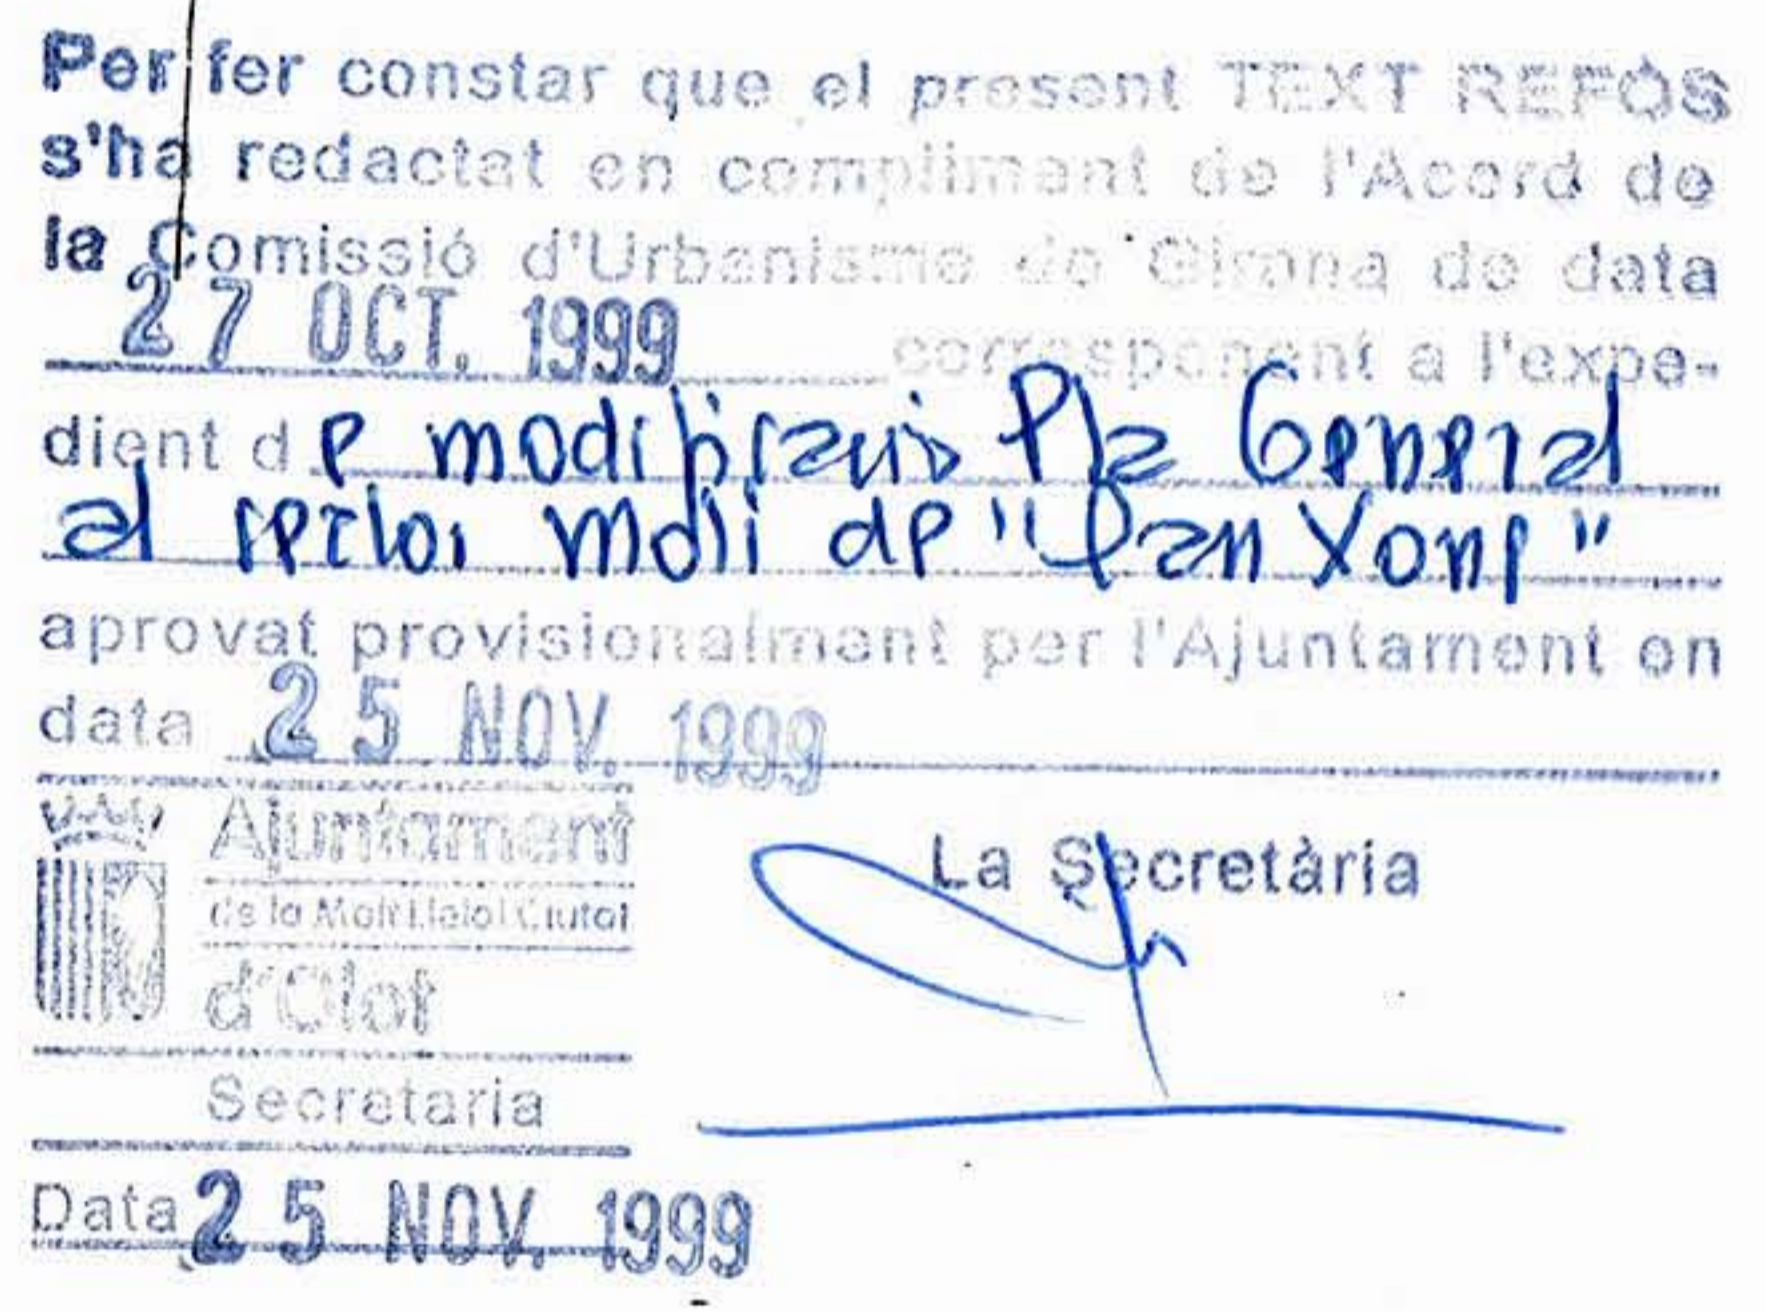 Per fer constar que el present TEXT REFÓS
s'ha redactat en compliment de l'Acord de
la Comissió d'Urbanisme de Girona de data
27 OCT. 1999 corresponent a l'expe-
dient de modificació Pla General
al sector molí de "Can Xong"
aprovat provisionalment per l'Ajuntament en
data 25 NOV. 1999
Ajuntament
de la Molt Lleial Ciutat
d'Olot
Secretaria
La Secretària
Data 25 NOV. 1999